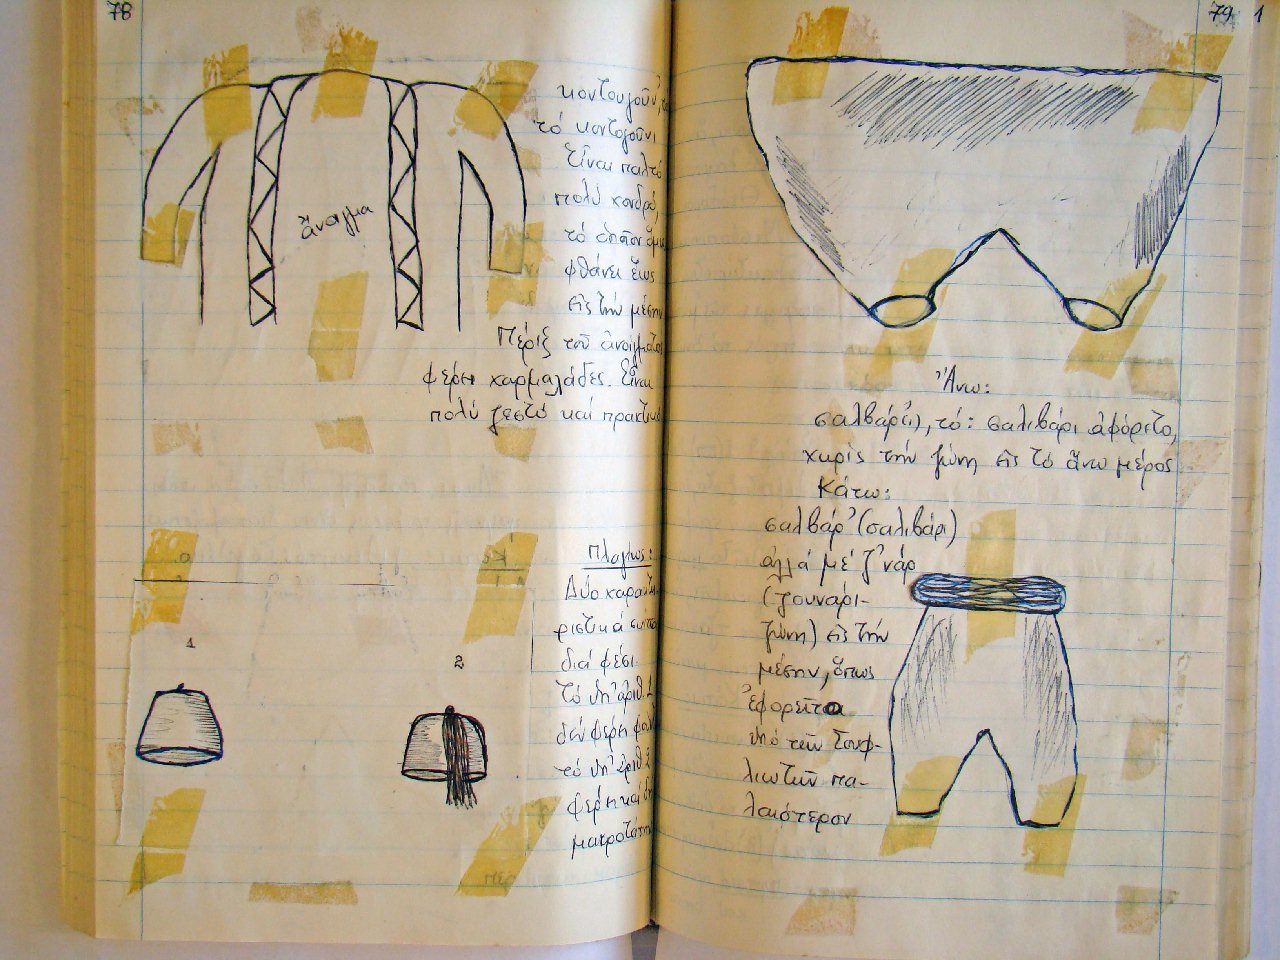 78
κοντογοῦν',
τό κοντογοῦνι
Εἶναι παλτό
πολύ χονδρό,
τό ὁποῖον
φθάνει ἕως
εἰς τήν μέσην
Πέριξ τοῦ ἀνοίγματος
φέρει χαρμαλάδες. Εἶναι
πολύ ζεστό καί πρακτικό
ἄνοιγμα
Πλαγίως:
Δύο χαρακτη-
ριστικά
διά φέσι.
τό ὑπ' ἀριθ. 1
δέν φέρει
τό ὑπ' ἀριθ. 2
φέρει καί
1
2
79
1
Ἄνω:
σαλβάρ(ι), τό: σαλιβάρι ἀφόρετο,
χωρίς τήν ζώνη εἰς τό ἄνω μέρος
Κάτω:
σαλβάρ' (σαλιβάρι)
ἀλλά μέ ζ'νάρ
(ζουνάρι-
ζώνη) εἰς τήν
μέσην, ὅπως
ἐφορεῖτο
ὑπό τῶν Σουφ-
λιωτῶν πα-
λαιότερον